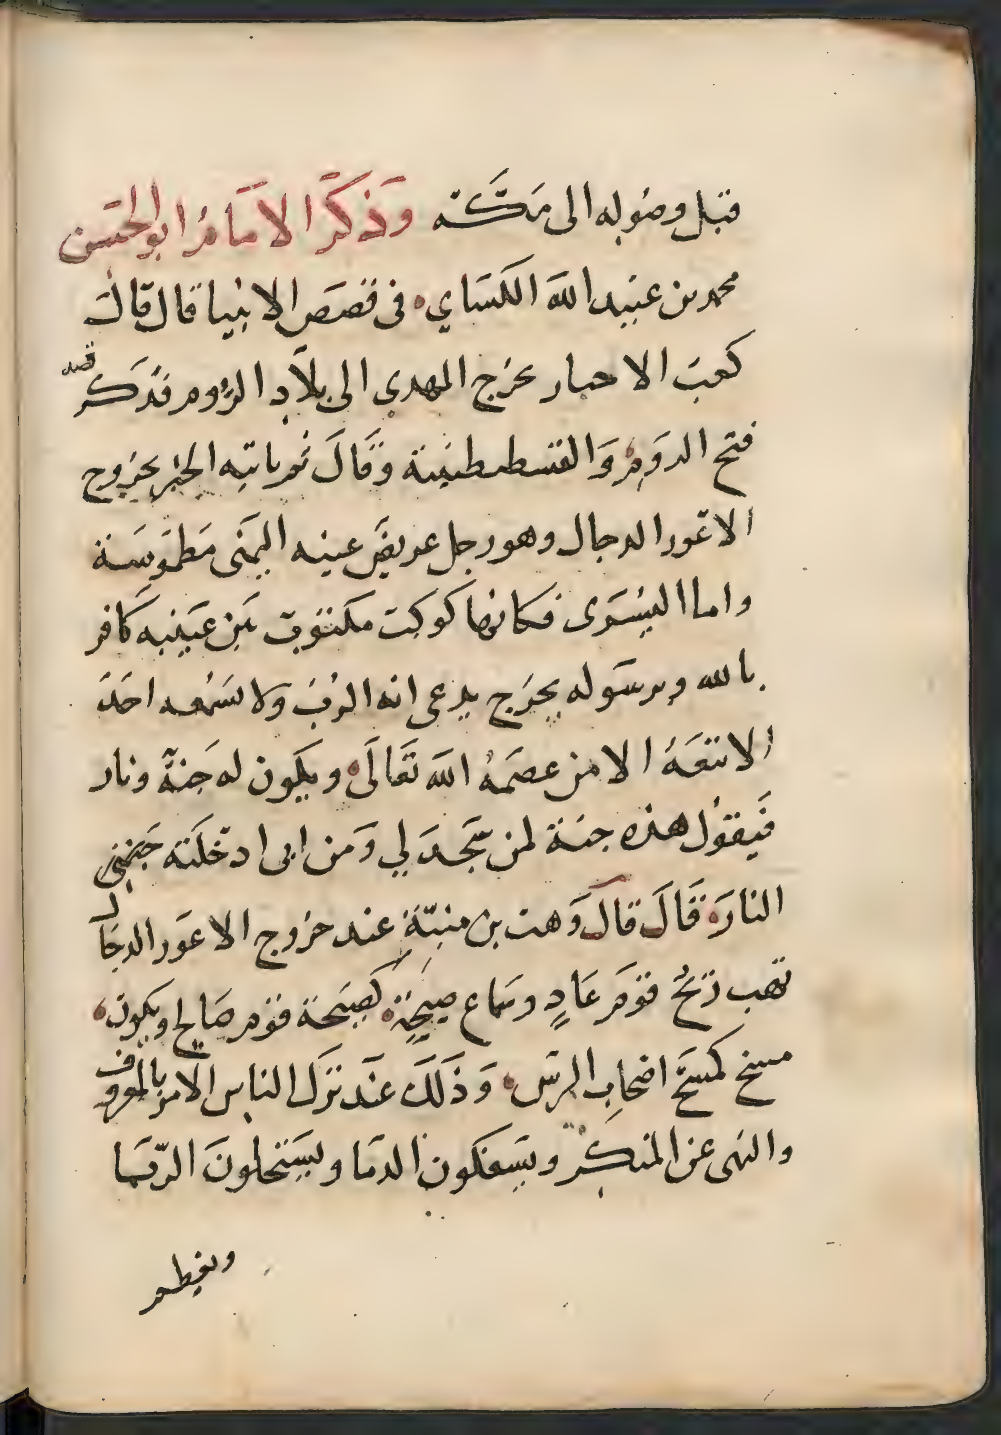 قبل وصوله الى مكة وذكر الامام ابو الحسن
محمد بن عبيد الله الكساي في قصص الانبيا قال قال
كعب الاحبار يخرج المهدي الى بلاد الروم فذكر قصه
فتح الروم والقسطنطينة وقال ثم ياتيه الخبر بخروج
الاعور الدجال وهو رجل عريض عينه اليمنى مطموسة
واما اليسرى فكانها كوكب مكتوب بين عينيه كافر
بالله وبرسوله يخرج يدعى انه الرب ولا يسمعه احد
الا تبعه الا من عصمه الله تعالى ويكون له جنة ونار
فيقول هذه جنة لمن سجد لي ومن ابى ادخلته
النار قال قال وهب بن منبه عند خروج الاعور الدجال
تهب ريح قوم عاد وسماع صيحة كصيحة قوم صالح ويكون
مسخ كمسخ اصحاب الرس وذلك عند ترك الناس الامر بالمعروف
والنهى عن المنكر ويسفكون الدما ويستحلون الربا